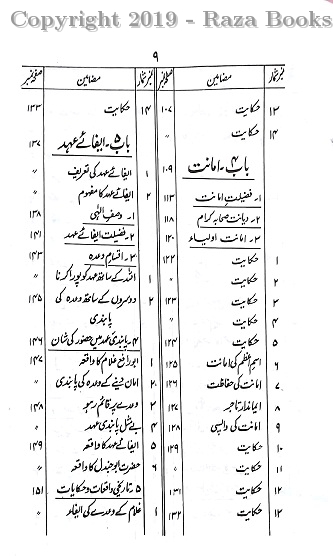 Copyright 2019 - Raza Books
۹
نمبر شمار مضامین صفحہ نمبر
۱۳ حکایت ۱۰۷
۱۴ حکایت 〃
باب ۴ ۔ امانت ۱۰۹
۱۔ فضیلت امانت ۱۱۳
۲۔ دیانت صحابہ کرام ۱۱۸
۳۔ امانت اولیاء ۱۲۰
۱ حکایت ۱۲۲
۲ حکایت 〃
۳ حکایت ۱۲۳
۴ حکایت 〃
۵ حکایت ۱۲۴
۶ اسم اعظم کی امانت ۱۲۵
۷ امانت کی حفاظت ۱۲۶
۸ ایماندار تاجر ۱۲۷
۹ امانت کی واپسی ۱۲۸
۱۰ حکایت ۱۲۹
۱۱ حکایت 〃
۱۲ حکایت ۱۳۱
۱۳ حکایت ۱۳۲
نمبر شمار مضامین صفحہ نمبر
۱۴ حکایت ۱۳۳
باب ۵ ۔ ایفائے عہد ۱۳۷
۱ ایفائے عہد کی تعریف 〃
۲ ایفائے عہد کا مفہوم 〃
۱۔ وصف الٰہی ۱۳۸
۲۔ فضیلت ایفائے عہد ۱۴۱
۳۔ اقسام وعدہ ۱۴۳
۱ اللہ کے ساتھ عہد کو پورا کرنا 〃
۲ دوسروں کے ساتھ وعدہ کی ۱۴۵
پابندی
۴۔ پابندی عہد میں حضور کی شان ۱۴۶
۱ ابو رافع غلام کا واقعہ ۱۴۷
۲ امان دینے کے وعدہ کی پابندی 〃
۳ وعدے پر قائم رہو ۱۴۸
۴ بے مثل پابندی عہد 〃
۵ ایفائے عہد کا واقعہ ۱۴۹
۶ حضرت ابو جندل کا واقعہ 〃
۵ تاریخی واقعات و حکایات ۱۵۱
۱ غلام کے وعدے کی ایفاء 〃